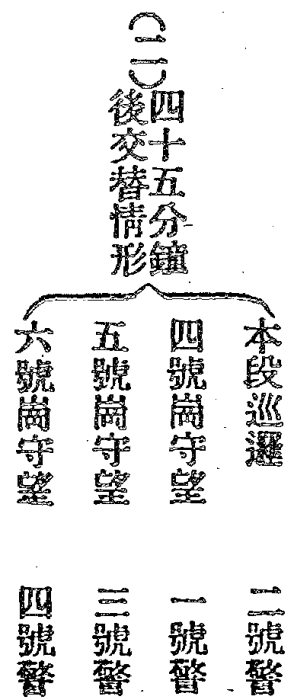 （二）四十五分鐘
後交替情形
本段巡邏　二號警
四號崗守望　一號警
五號崗守望　三號警
六號崗守望　四號警